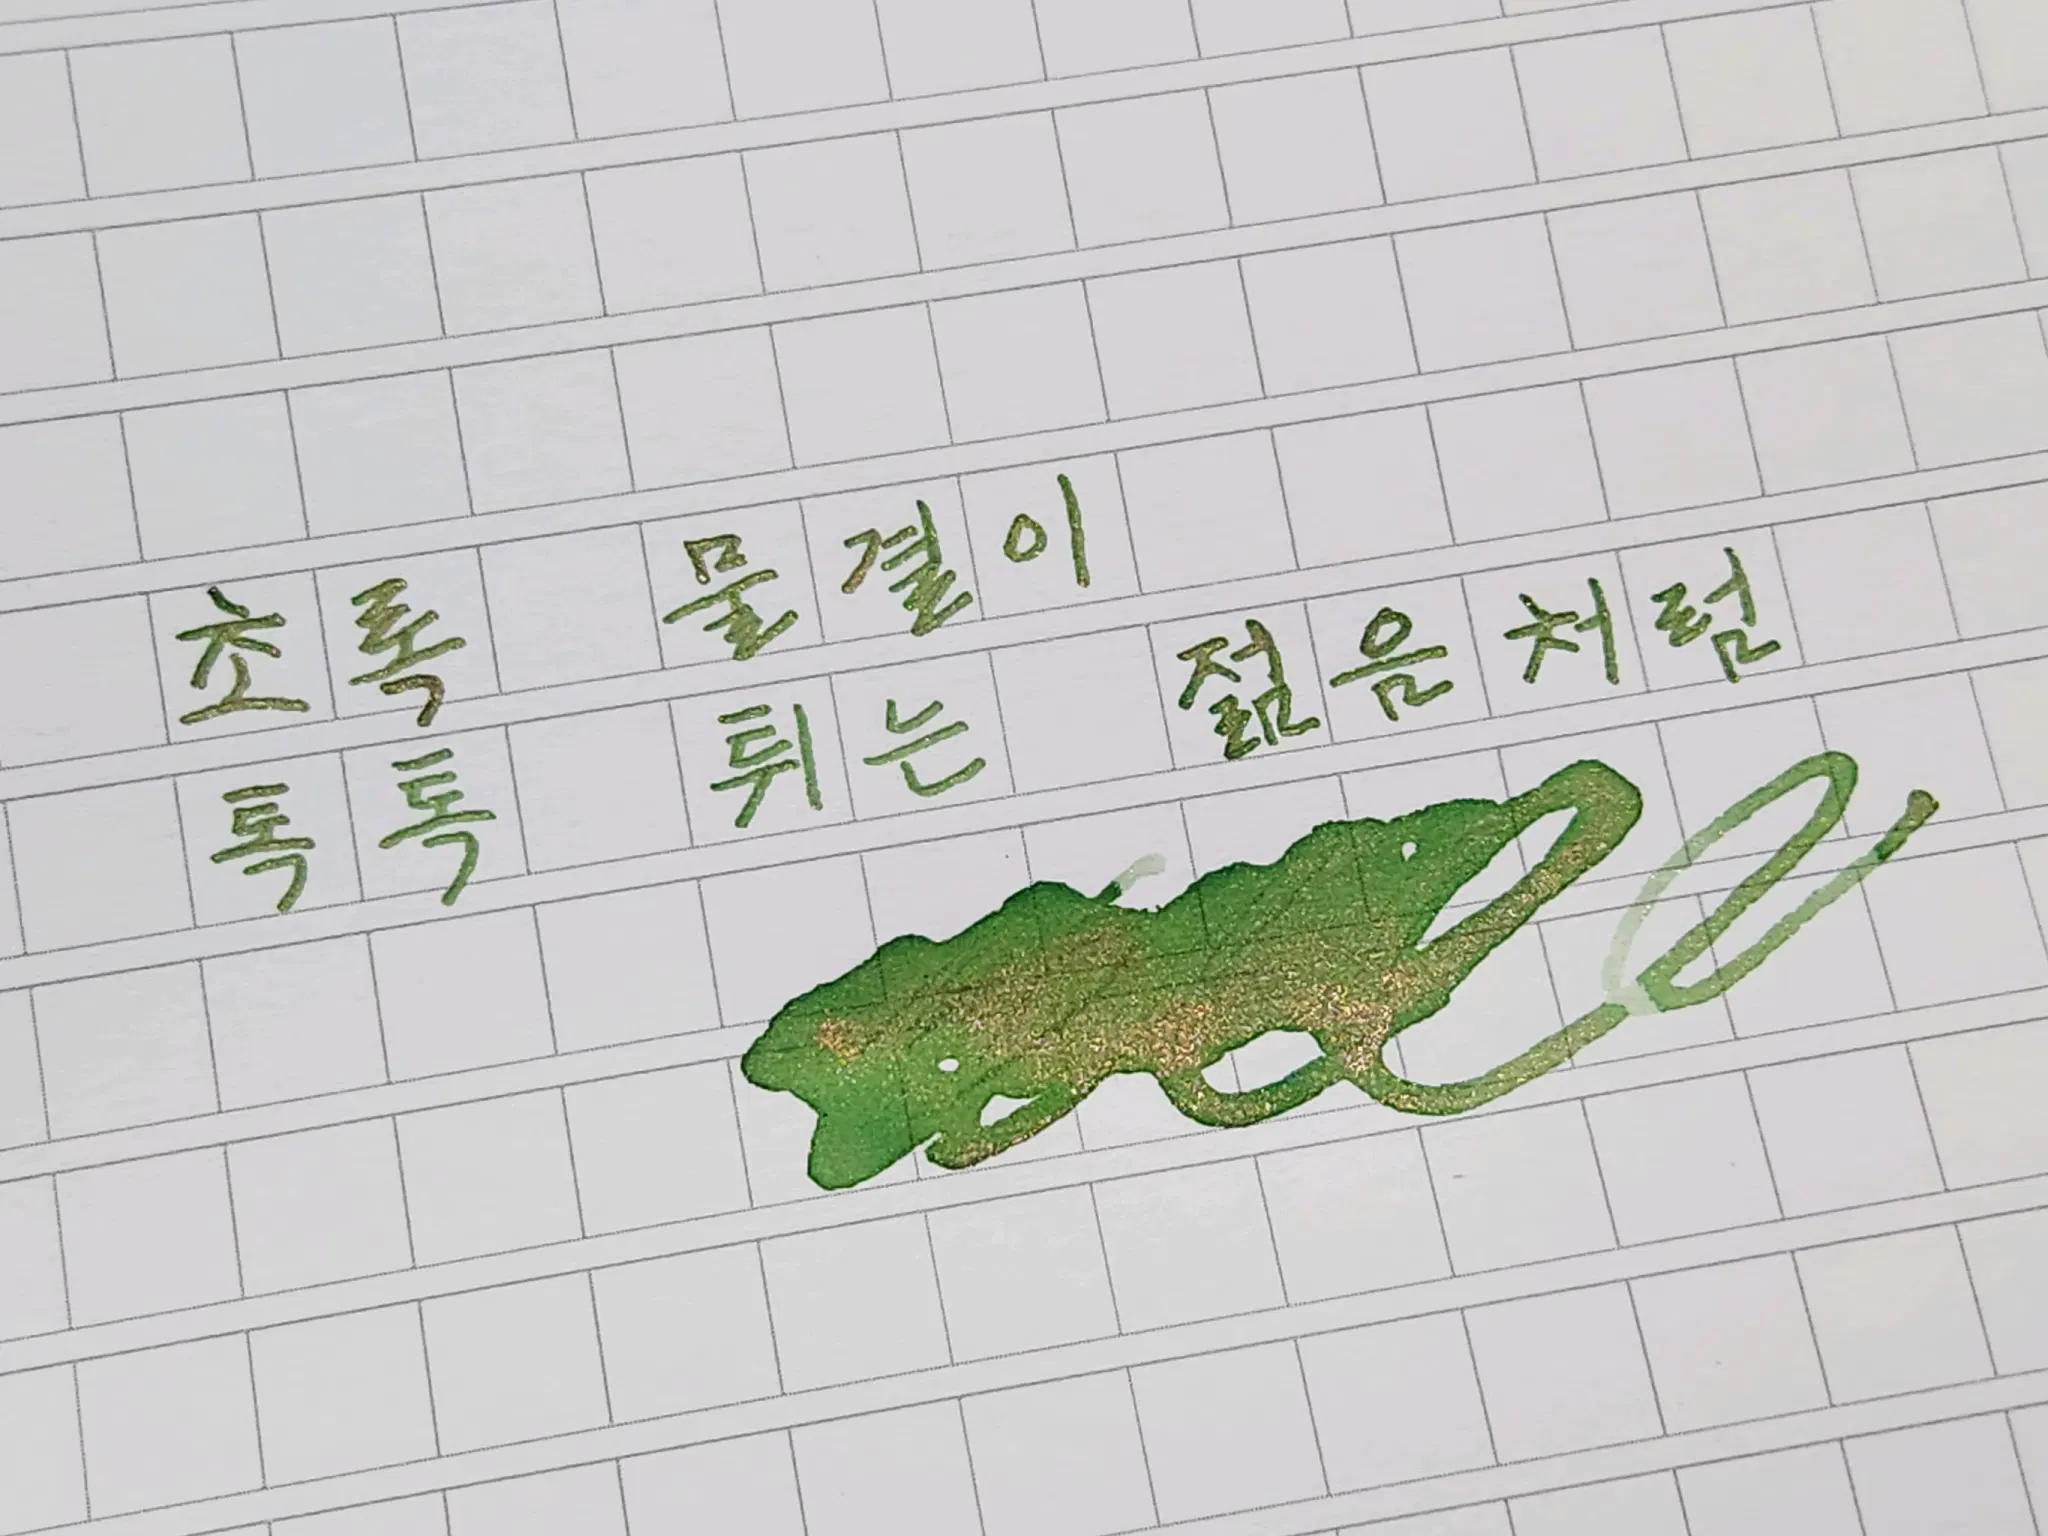 초록 물결이
톡톡 튀는 젊음처럼